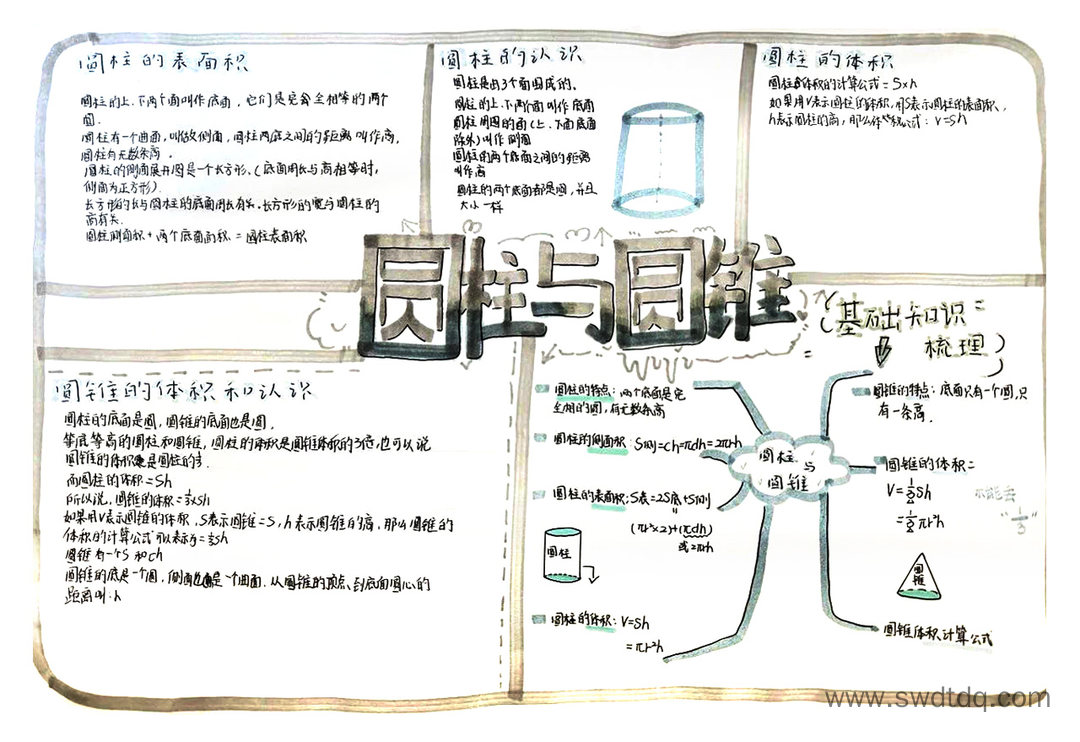 圆柱的表面积
圆柱的上、下两个面叫作底面，它们是完全相等的两个
圆.
圆柱有一个曲面，叫做侧面，圆柱两底之间的距离叫作高，
圆柱有无数条高.
圆柱的侧面展开图是一个长方形、(底面周长与高相等时，
侧面为正方形).
长方形的长与圆柱的底面周长有关，长方形的宽与圆柱的
高有关.
圆柱侧面积+两个底面面积=圆柱表面积
圆柱的认识
圆柱是由3个面围成的。
圆柱的上、下两个面叫作底面
圆柱周围的面(上、下面底面
除外)叫作侧面
圆柱的两个底面之间的距离
叫作高
圆柱的两个底面都是圆，并且
大小一样
圆柱的体积
圆柱体积的计算公式=S×h
如果用V表示圆柱的体积，用S表示圆柱的表面积，
h表示圆柱的高，那么体积公式：V=Sh
圆柱与圆锥
(基础知识
梳理)
圆锥的体积和认识
圆柱的底面是圆，圆锥的底面也是圆.
等底等高的圆柱和圆锥，圆柱的体积是圆锥体积的3倍，也可以说
圆锥的体积是圆柱的⅓.
而圆柱的体积=Sh
所以说，圆锥的体积=⅓×Sh
如果用V表示圆锥的体积，S表示圆锥=S，h表示圆锥的高，那么圆锥的
体积的计算公式可以表示为=⅓Sh
圆锥有一个S和ch
圆锥的底是一个圆，侧面也是一个曲面.从圆锥的顶点到底面圆心的
距离叫:h
圆柱的特点：两个底面是完
全相的圆，有无数条高
圆柱的侧面积：S侧=Ch=πdh=2πrh
圆柱的表面积：S表=2S底+S侧
=
(πr²×2)+(πdh)
或2πrh
圆柱
圆柱的体积：V=Sh
=πr²h
圆柱与
圆锥
圆锥的特点：底面只有一个圆，只
有一条高.
圆锥的体积=
V=½Sh
=½πr²h
"⅓"
圆锥
圆锥体积计算公式
www.swdtdq.com